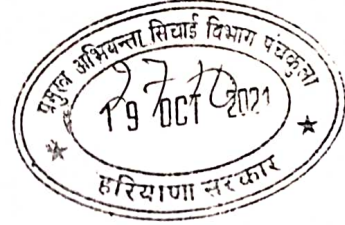 प्रमुख अभियन्ता सिंचाई विभाग पंचकुला
19 OCT 2021
हरियाणा सरकार